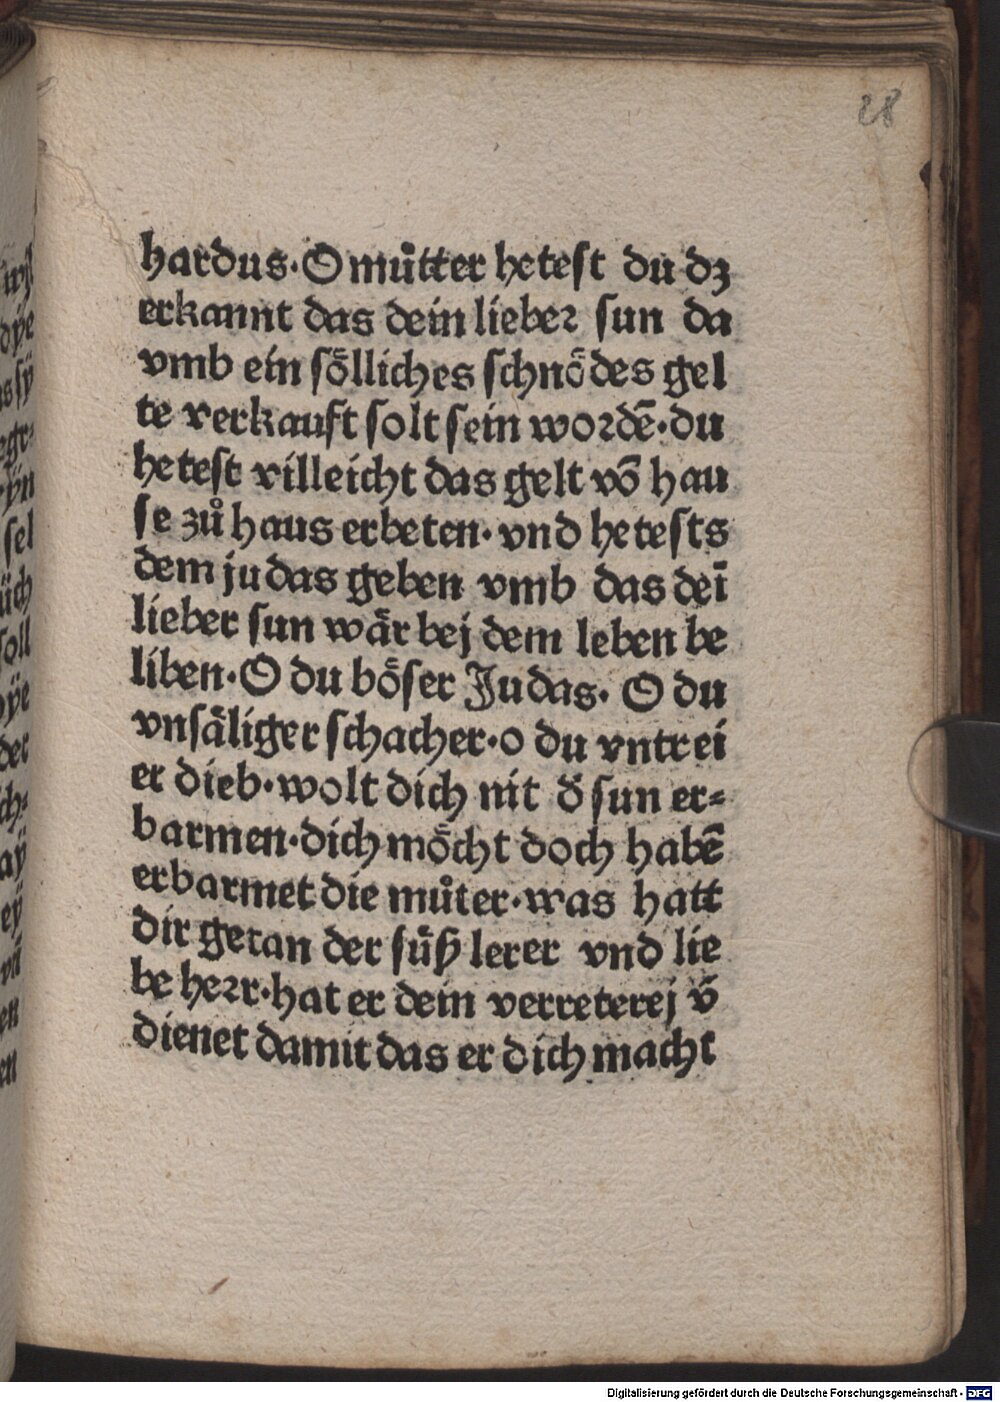 28
hardus·O můtter hetest du dz
erkannt das dein lieber sun da
vmb ein sölliches schnödes gel
te verkauft solt sein wordē·du
hetest villeicht das gelt vō hau
se zů haus erbeten·vnd hetests
dem judas geben vmb das deī
lieber sun wär bej dem leben be
liben·O du böser Judas·O du
vnsäliger schacher·o du vntrei
er dieb·wolt dich nit d̄ sun er=
barmen·dich möcht doch habē
erbarmet die můter·was hatt
dir getan der süß lerer vnd lie
be herr·hat er dein verreterej v̄
dienet damit das er dich macht
Digitalisierung gefördert durch die Deutsche Forschungsgemeinschaft - DFG